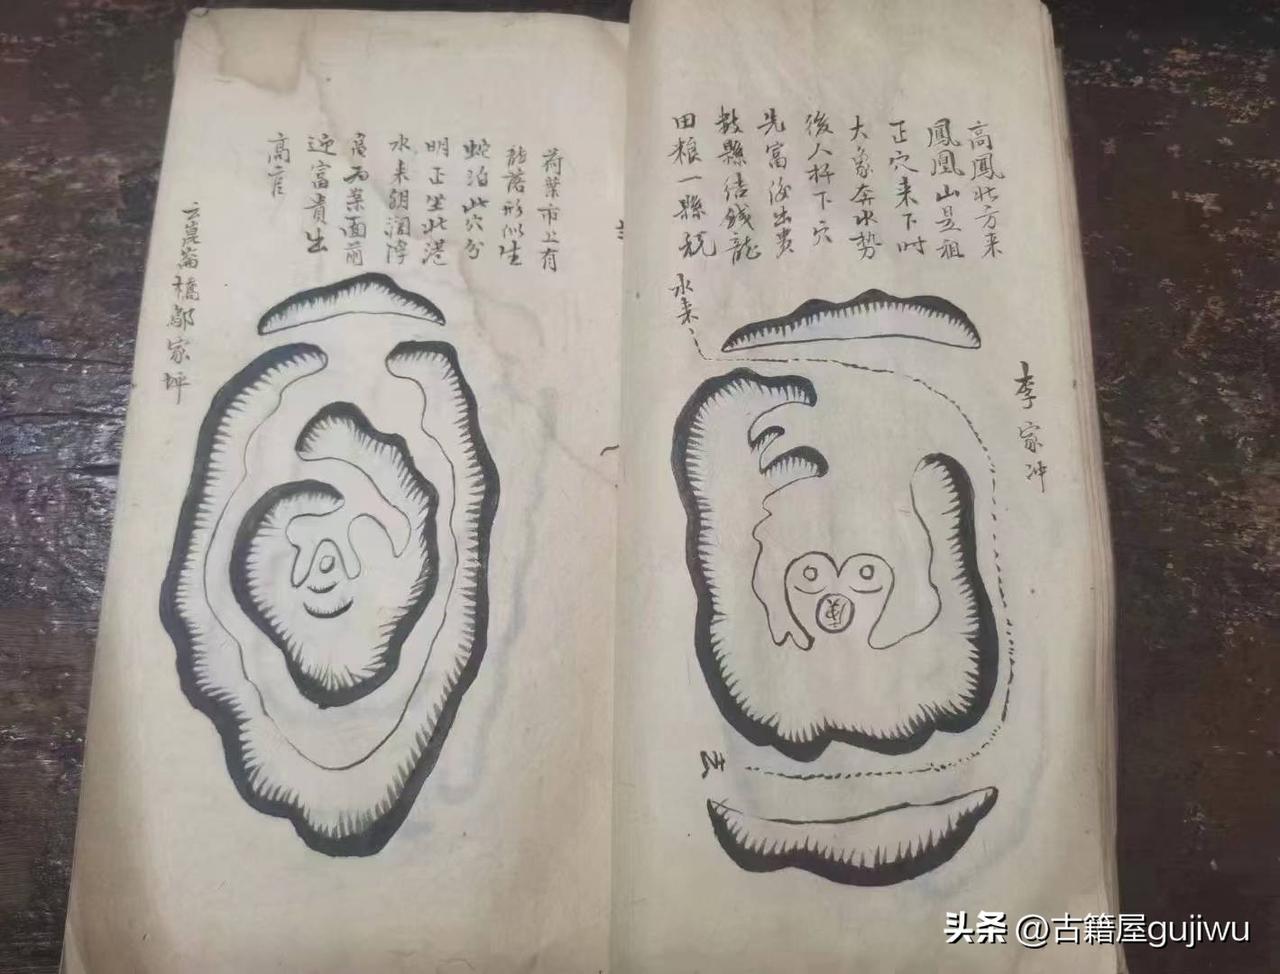 高鳳北方来
鳳凰山是祖
正穴来下时
大象奔水势
後人杆下穴
先富後出贵
数縣结錢龍
田粮一縣税
水来
李家冲
庚
去
荷葉市上有
龍落形似生
蛇泊此穴分
明正坐北港
水来朝潤降
為案面前
迎富貴出
高官
云崑崙橋鄒家坪
头条 @古籍屋gujiwu